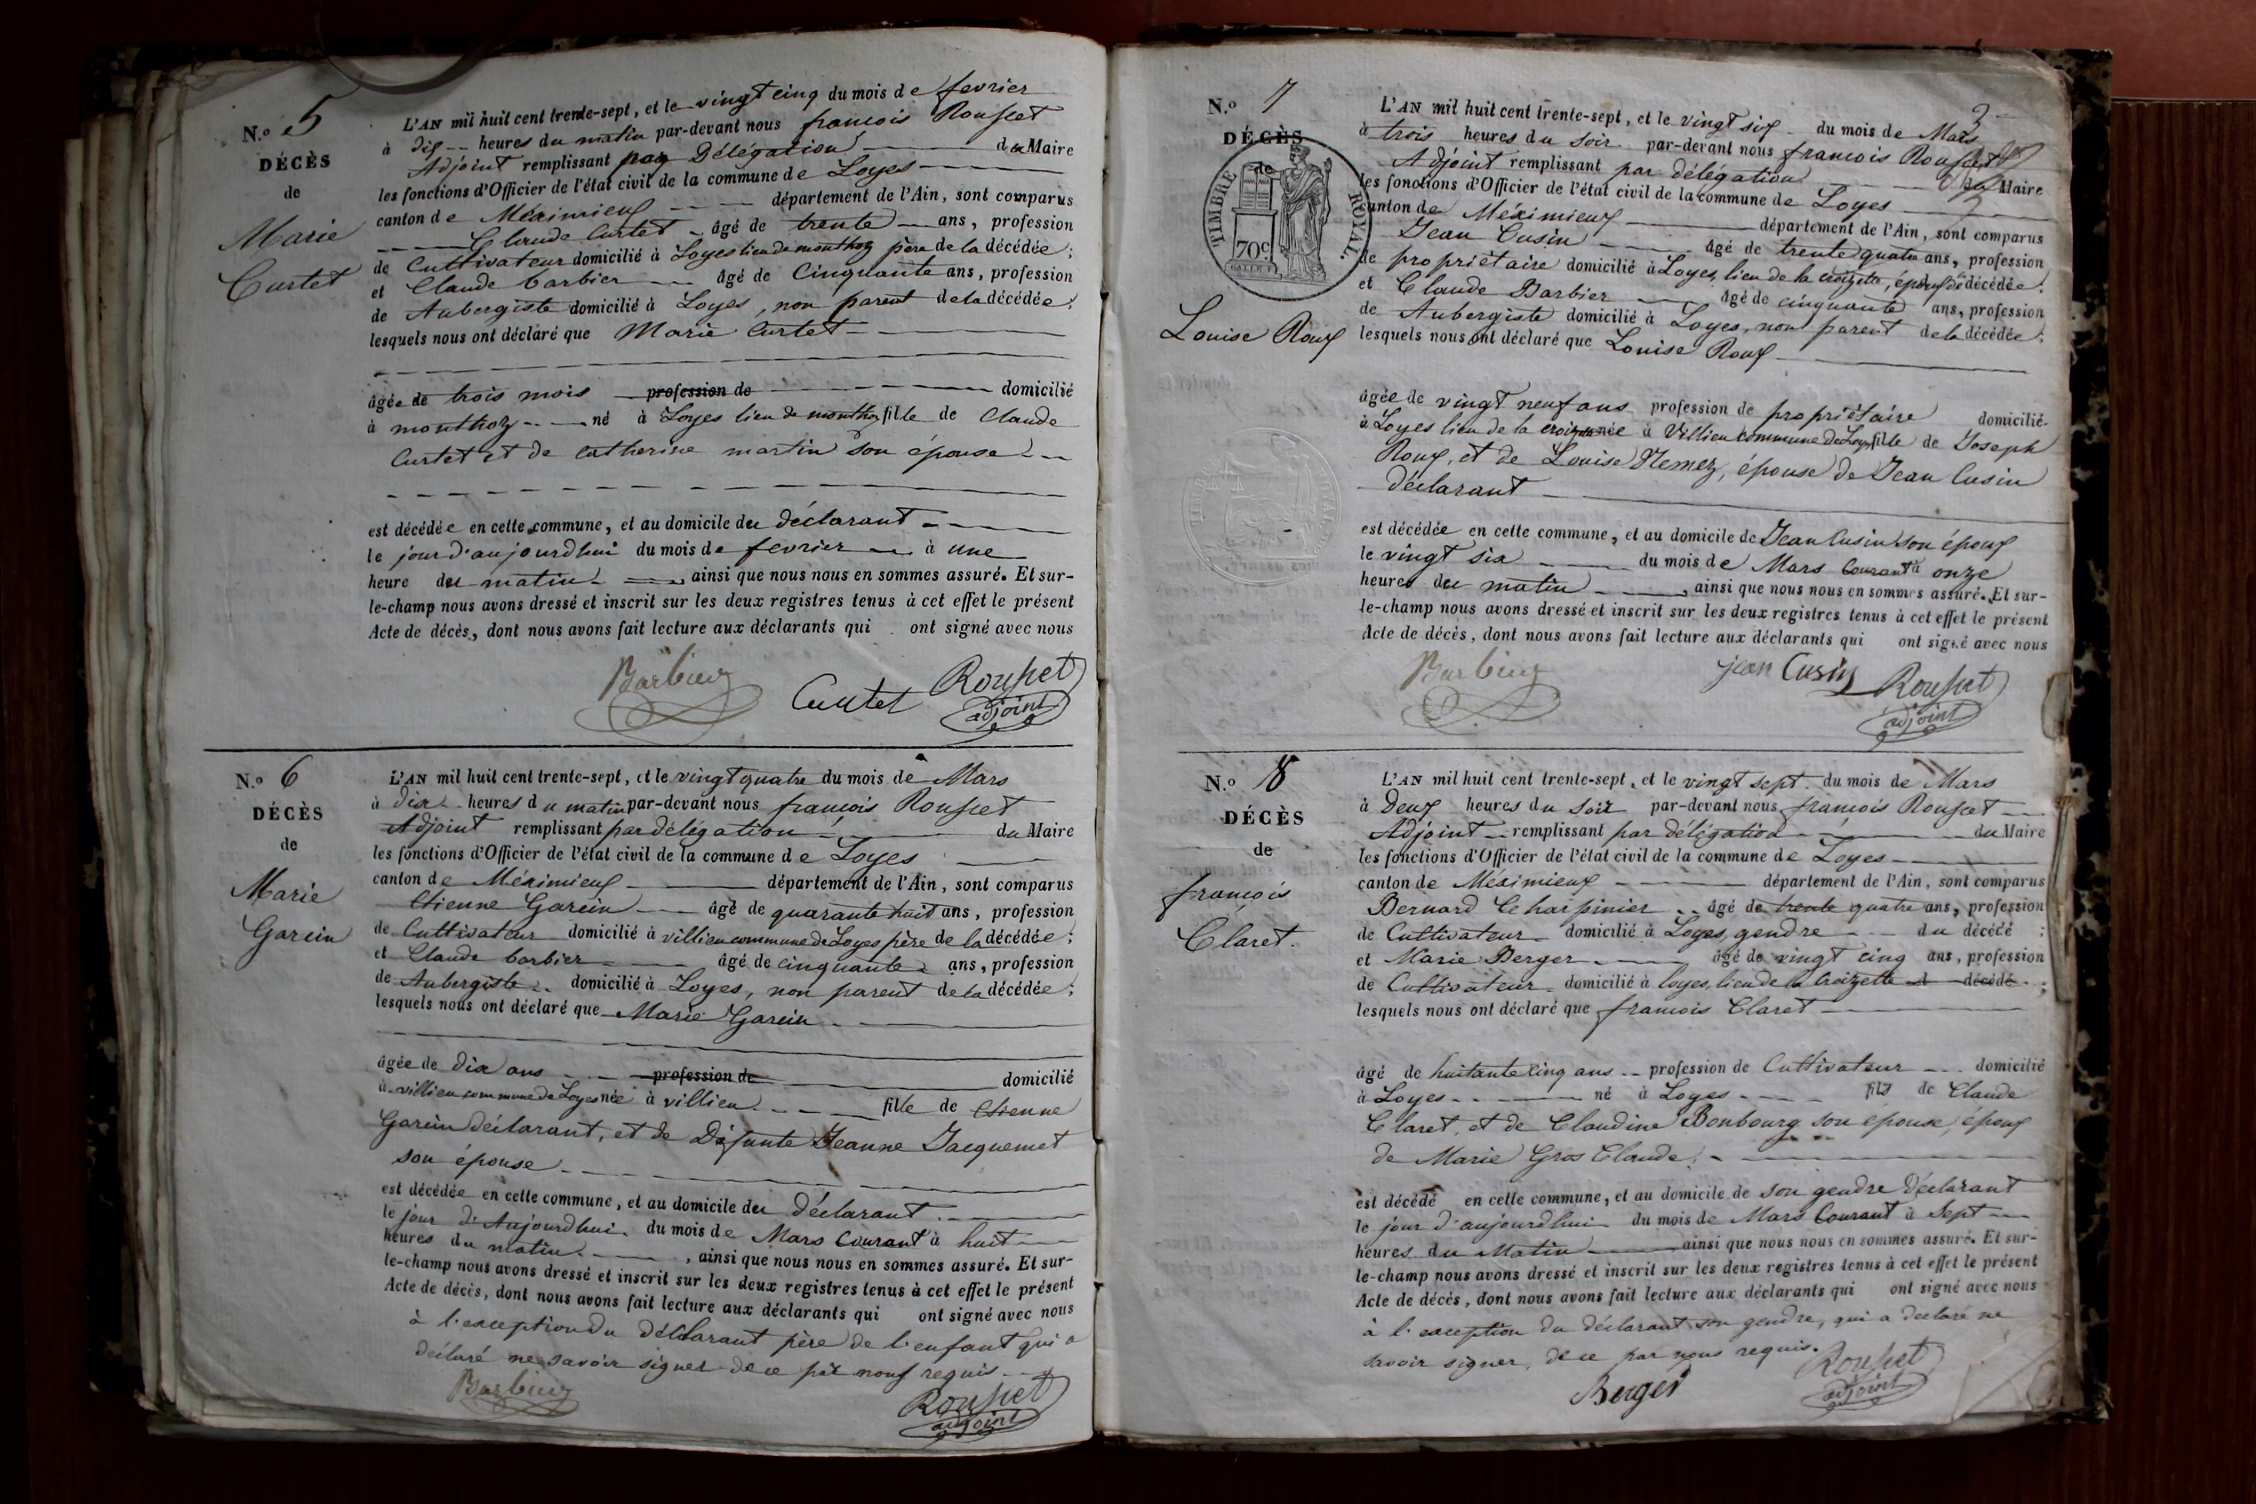 N.o 5
DÉCÈS
de
Marie
Curtet
L'AN mil huit cent trente-sept, et le vingt cinq du mois de fevrier
à dix heures du matin par-devant nous francois Rousset
Adjoint remplissant par Délégation du Maire
les fonctions d'Officier de l'état civil de la commune de Loyes
canton de Méximieux département de l'Ain, sont comparus
Claude Curtet âgé de trente ans, profession
de Cultivateur domicilié à Loyes lieu de monthoz père de la décédée;
et Claude barbier âgé de Cinquante ans, profession
de Aubergiste domicilié à Loyes, non parent de la décédée;
lesquels nous ont déclaré que Marie Curtet
âgée de trois mois profession de domicilié
à monthoz né à Loyes lieu de monthoz fille de Claude
Curtet et de catherine martin son épouse
est décédée en cette commune, et au domicile du déclarant
le jour d'aujourdhui du mois de fevrier à une
heure du matin ainsi que nous nous en sommes assuré. Et sur-
le-champ nous avons dressé et inscrit sur les deux registres tenus à cet effet le présent
Acte de décès, dont nous avons fait lecture aux déclarants qui ont signé avec nous
Barbier Curtet Rousset
adjoint
N.o 6
DÉCÈS
de
Marie
Garcin
L'AN mil huit cent trente-sept, et le vingt quatre du mois de Mars
à dix heures du matin par-devant nous francois Rousset
Adjoint remplissant par délégation du Maire
les fonctions d'Officier de l'état civil de la commune de Loyes
canton de Méximieux département de l'Ain, sont comparus
Etienne Garcin âgé de quarante huit ans, profession
de Cultivateur domicilié à villieu commune de Loyes père de la décédée;
et Claude barbier âgé de cinquante ans, profession
de Aubergiste domicilié à Loyes, non parent de la décédée;
lesquels nous ont déclaré que Marie Garcin
âgée de dix ans profession de domicilié
à villieu commune de Loyes née à villieu fille de Etienne
Garcin déclarant, et de Défunte Jeanne Jacquemet
son épouse
est décédée en cette commune, et au domicile du déclarant
le jour d'Aujourdhui du mois de Mars Courant à huit
heures du matin, ainsi que nous nous en sommes assuré. Et sur-
le-champ nous avons dressé et inscrit sur les deux registres tenus à cet effet le présent
Acte de décès, dont nous avons fait lecture aux déclarants qui ont signé avec nous
à l'exception du déclarant père de l'enfant qui a
déclaré ne savoir signer de ce par nous requis
Barbier Rousset
adjoint
3
N.o 7
DÉCÈS
de
TIMBRE ROYAL.
70c
Louise Roux
L'AN mil huit cent trente-sept, et le vingt six du mois de Mars
à trois heures du soir par-devant nous francois Rousset
Adjoint remplissant par délégation du Maire
les fonctions d'Officier de l'état civil de la commune de Loyes
canton de Méximieux département de l'Ain, sont comparus
Jean Cusin âgé de trente quatre ans, profession
de propriètaire domicilié à Loyes, lieu de la croizette, époux de la décédée;
et Claude Barbier âgé de cinquante ans, profession
de Aubergiste domicilié à Loyes, non parent de la décédée;
lesquels nous ont déclaré que Louise Roux
âgée de vingt neuf ans profession de propriètaire domicilié
à Loyes lieu de la née à Villieu commune de Loyes fille de Joseph
Roux, et de Louise épouse de Jean Cusin
déclarant
est décédée en cette commune, et au domicile de Jean Cusin son époux
le vingt six du mois de Mars Courant à onze
heures du matin, ainsi que nous nous en sommes assuré. Et sur-
le-champ nous avons dressé et inscrit sur les deux registres tenus à cet effet le présent
Acte de décès, dont nous avons fait lecture aux déclarants qui ont signé avec nous
Barbier jean Cusin Rousset
adjoint
N.o 8
DÉCÈS
de
francois
Claret.
L'AN mil huit cent trente-sept, et le vingt sept du mois de Mars
à deux heures du soir par-devant nous francois Rousset
Adjoint remplissant par délégation du Maire
les fonctions d'Officier de l'état civil de la commune de Loyes
canton de Méximieux département de l'Ain, sont comparus
Bernard Charpinier âgé de trente quatre ans, profession
de Cultivateur domicilié à Loyes, gendre du décédé;
et Marie Berger âgé de vingt cinq ans, profession
de Cultivateur domicilié à loyes, lieu de la Croizette d décédé;
lesquels nous ont déclaré que francois Claret
âgé de huitante cinq ans profession de Cultivateur domicilié
à Loyes né à Loyes fils de Claude
Claret, et de Claudine Bonbourg son epouse, époux
de Marie Gros Claude
est décédé en cette commune, et au domicile de son gendre Déclarant
le jour d'aujourdhui du mois de Mars Courant à Sept
heures du Matin ainsi que nous nous en sommes assuré. Et sur-
le-champ nous avons dressé et inscrit sur les deux registres tenus à cet effet le présent
Acte de décès, dont nous avons fait lecture aux déclarants qui ont signé avec nous
à l'exception du déclarant son gendre, qui a declaré ne
savoir signer, de ce par nous requis.
Berger Rousset
adjoint